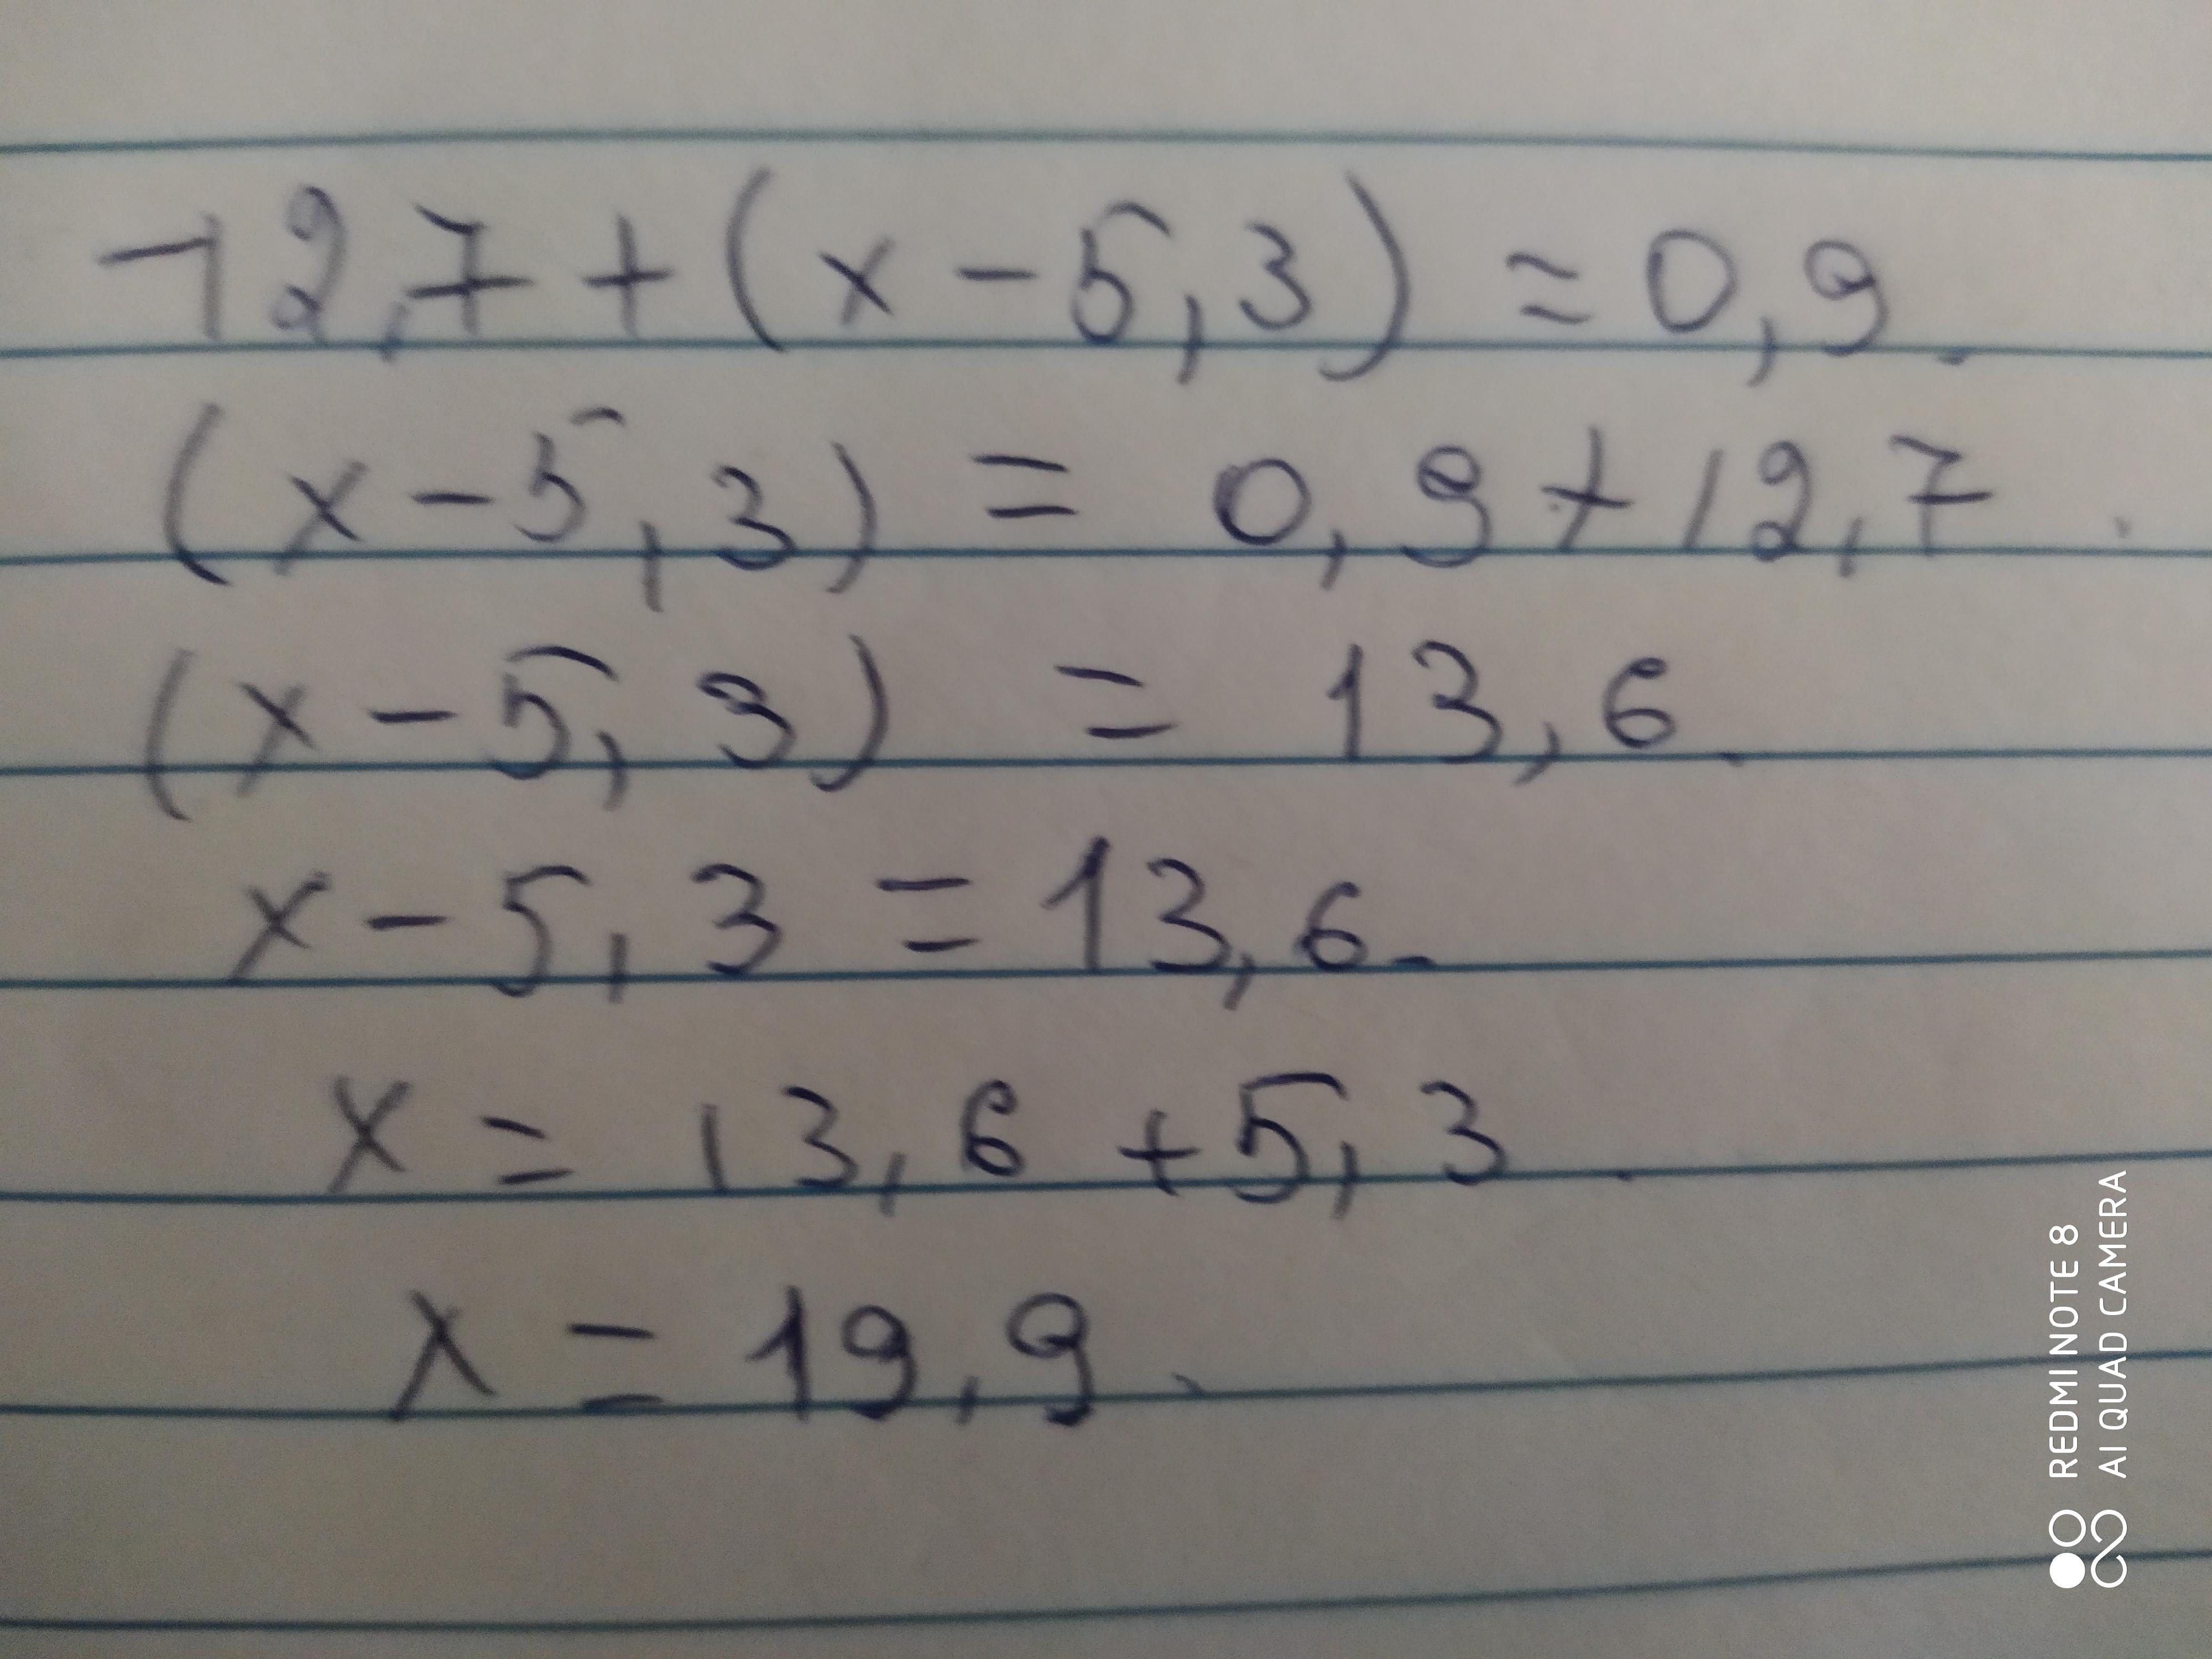 -12,7+(x-5,3)=0,9.
(x-5,3)=0,9+12,7.
(x-5,3)=13,6.
x-5,3=13,6.
x=13,6+5,3.
x=19,9.
REDMI NOTE 8
AI QUAD CAMERA